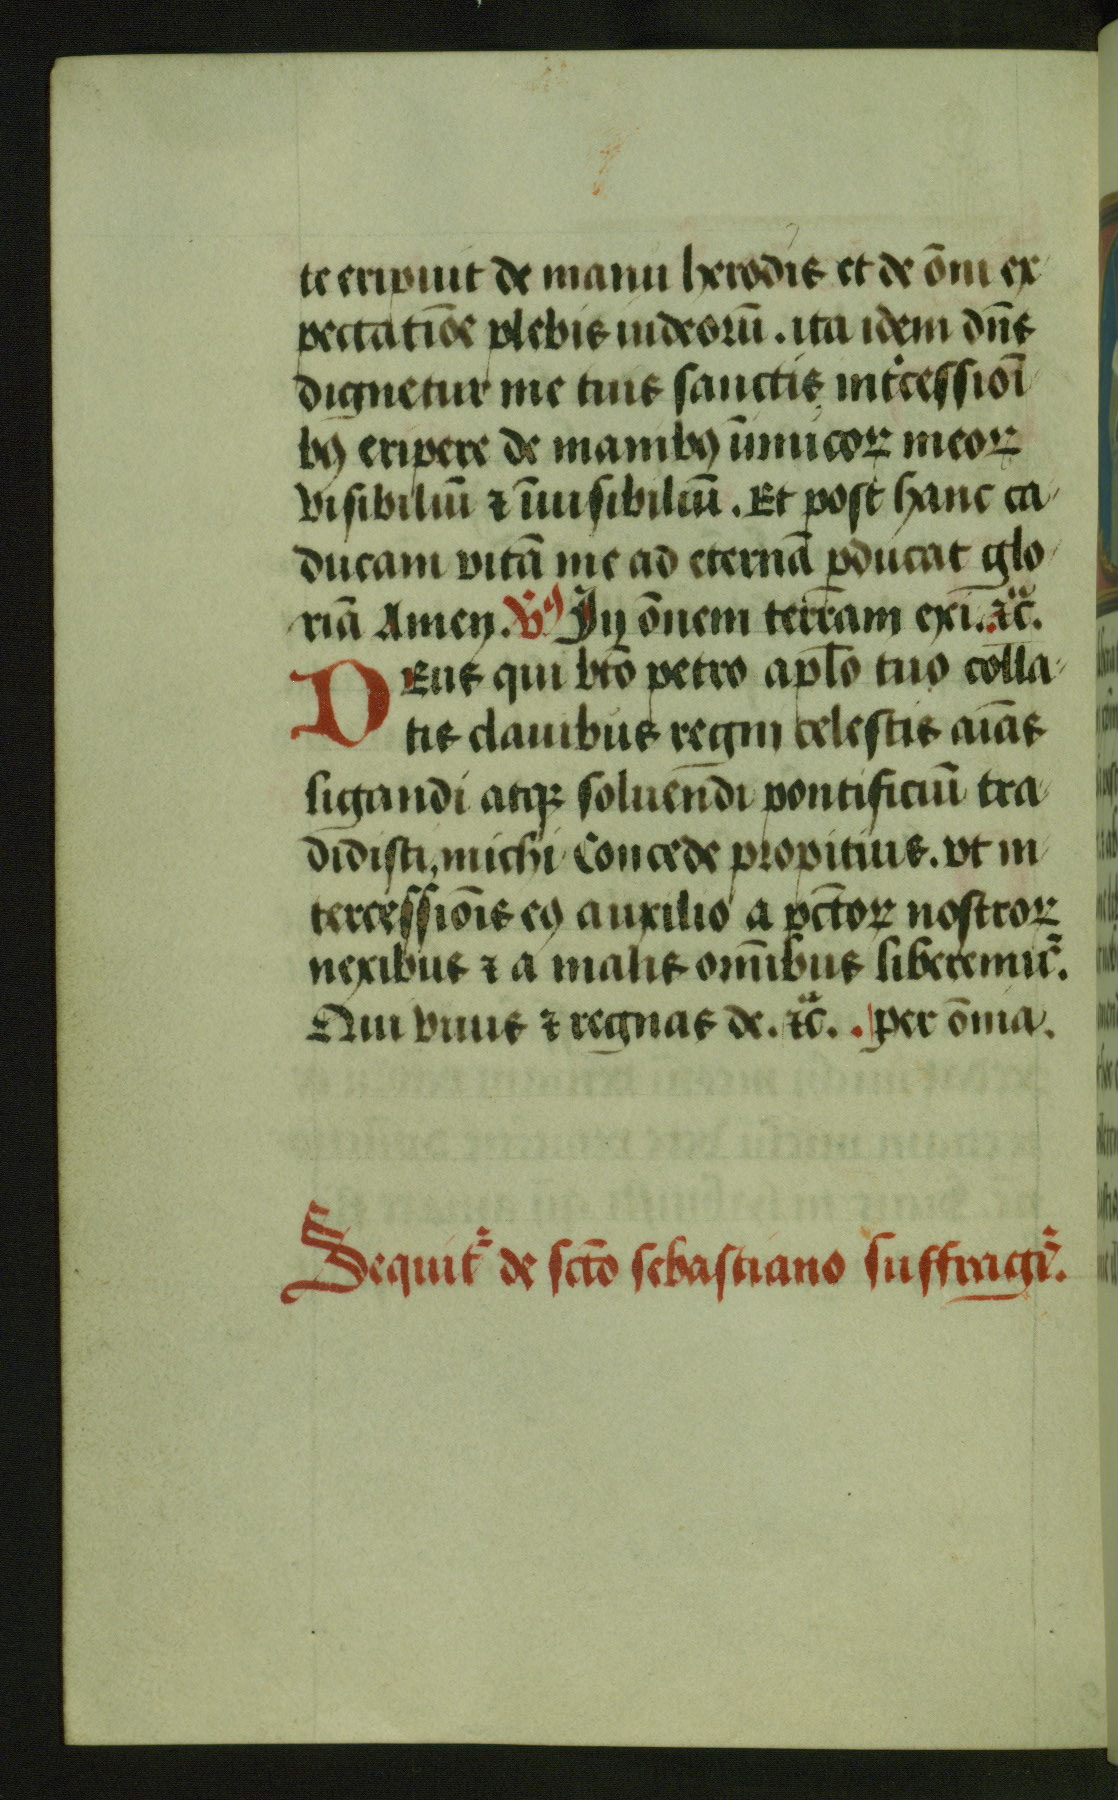 te eripuit de manu herodis et de õni ex
pectatiõe plebis iudeorũ. ita idem dñs
dignetur me tuis sanctis int̾cessioĩ
bꝰ eripere de manibꝰ inimicoꝝ meoꝝ
visibiliũ ⁊ ĩuisibiliũ. Et post hanc ca
ducam vitã me ad eternã ꝑducat glo
riã Amen. ℣ In õnem terram exi. ⁊c̃.
DEus qui btõ petro apl̃o tuo colla
tis clauibus regni celestis aĩas
ligandi atqꝫ soluendi pontificiũ tra
didisti, michi Concede propitius. vt in
tercessiõis eꝰ auxilio a pctõꝝ nostroꝝ
nexibus ⁊ a malis om̃ibus liberemur̃.
Qui viuis ⁊ regnas de. ⁊c̃. . per õnia.
Sequit̃ de sctõ sebastiano suffragi̾.